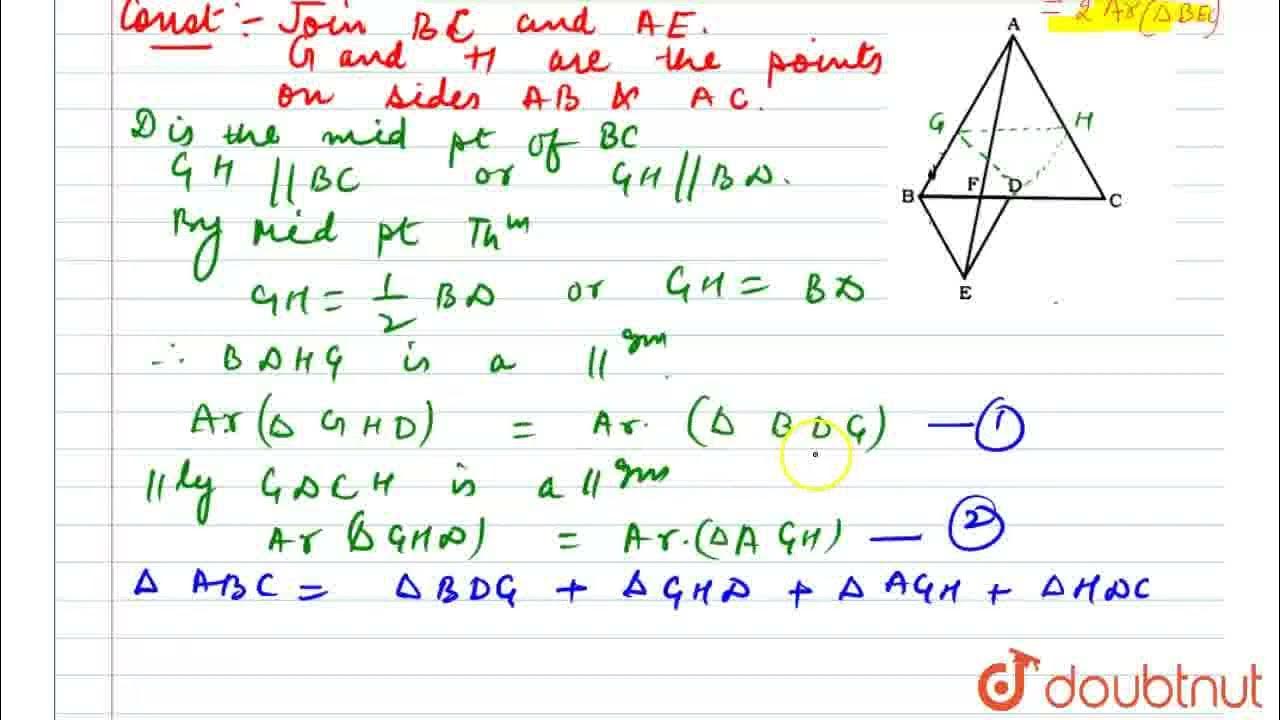 Const :- Join BE and AE.
= 2 Ar(ΔBEC)
G and H are the points
on sides AB & AC.
D is the mid pt of BC
GH || BC or GH || BD.
By Mid pt Thm
GH = 1/2 BD or GH = BD
∴ BDHG is a ||gm.
Ar(Δ GHD) = Ar. (Δ BDG) — ①
||ly GDCH is a ||gm
Ar (ΔGHD) = Ar.(ΔAGH) — ②
Δ ABC = ΔBDG + ΔGHD + ΔAGH + ΔHDC
A
G
H
B
F
D
C
E
doubtnut